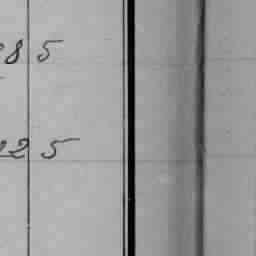 8 5
2 5